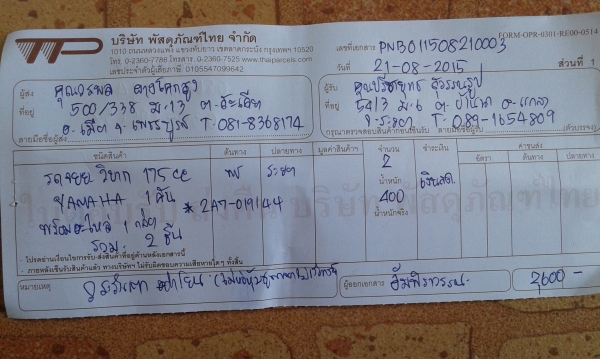 บริษัท พัสดุภัณฑ์ไทย จำกัด
1010 ถนนหลวงแพ่ง แขวงทับยาว เขตลาดกระบัง กรุงเทพฯ 10520
โทร. 0-2360-7788 โทรสาร. 0-2360-7525 www.thaiparcels.com
เลขประจำตัวผู้เสียภาษี 0105547099642
FORM-OPR-0301-RE00-0514
เลขที่เอกสาร PNB011508210003
วันที่ 21-08-2015 ส่วนที่ 1
ผู้ส่ง คุณวรพล
ที่อยู่ 500/338 ม.13 ต.สะเดียง
อ.เมือง จ.เพชรบูรณ์ T.081-8368174
ลายมือชื่อผู้ส่ง
ผู้รับ คุณปรีชายุทธ สุวรรณรูป
ที่อยู่ 54/3 ม.6 ต.บ้านนา อ.แกลง
จ.ระยอง T.089-1654809
กรุณาตรวจสอบสินค้าก่อนเซ็นรับ ลายมือชื่อผู้รับ (ตัวบรรจง)
ชนิดสินค้า ต้นทาง ปลายทาง มูลค่าสินค้าฯ จำนวน ชำระเงิน ค่าขนส่ง
อัตรา ต้นทาง ปลายทาง
รถจยย วิบาก 175 cc พช ระยอง 2
YAMAHA 1 คัน * 2A7-019144
น้ำหนัก 400 เงินสด.
น้ำหนักจริง
พร้อมอะไหล่ 1 กล่อง
รวม. 2 ชิ้น
* โปรดอ่านเงื่อนไขการรับส่งสินค้าที่อยู่ด้านหลังเอกสารนี้
* ภายหลังเซ็นรับสินค้าแล้ว ทางบริษัทฯ ไม่รับผิดชอบความเสียหายใดๆ ทั้งสิ้น
หมายเหตุ อย่าโยน
ผู้ออกเอกสาร อัมพิกาวรรณ. 2600 -